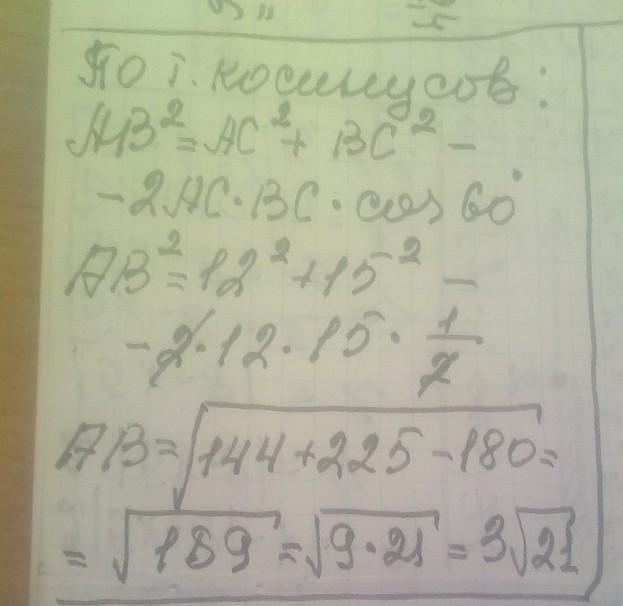 По т. косинусов:
AB² = AC² + BC² -
- 2AC · BC · cos 60°
AB² = 12² + 15² -
- 2 · 12 · 15 · 1/2
AB = √144 + 225 - 180 =
= √189 = √9 · 21 = 3√21